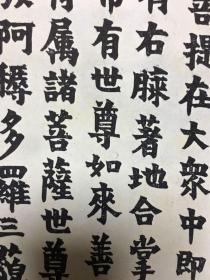 菩提在大眾中即
右膝著地合掌
希有世尊如來善
属諸菩薩世尊
阿耨多羅三藐